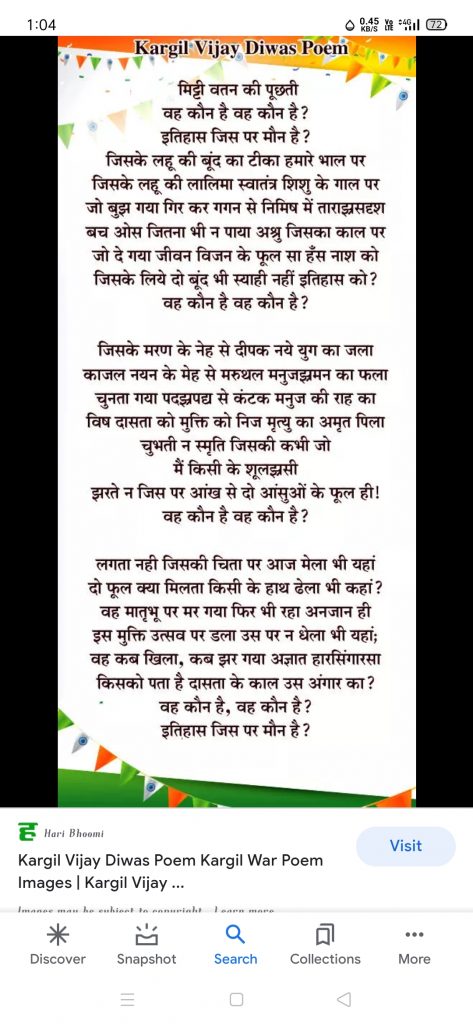 1:04
0.45 KB/S Vo LTE 4G 72
Kargil Vijay Diwas Poem
मिट्टी वतन की पूछती
वह कौन है वह कौन है?
इतिहास जिस पर मौन है?
जिसके लहू की बूंद का टीका हमारे भाल पर
जिसके लहू की लालिमा स्वातंत्र शिशु के गाल पर
जो बुझ गया गिर कर गगन से निमिष में ताराझसदृश
बच ओस जितना भी न पाया अश्रु जिसका काल पर
जो दे गया जीवन विजन के फूल सा हँस नाश को
जिसके लिये दो बूंद भी स्याही नहीं इतिहास को?
वह कौन है वह कौन है?
जिसके मरण के नेह से दीपक नये युग का जला
काजल नयन के मेह से मरुथल मनुजझमन का फला
चुनता गया पदझपद्म से कंटक मनुज की राह का
विष दासता को मुक्ति को निज मृत्यु का अमृत पिला
चुभती न स्मृति जिसकी कभी जो
मैं किसी के शूलझसी
झरते न जिस पर आंख से दो आंसुओं के फूल ही!
वह कौन है वह कौन है?
लगता नही जिसकी चिता पर आज मेला भी यहां
दो फूल क्या मिलता किसी के हाथ ढेला भी कहां?
वह मातृभू पर मर गया फिर भी रहा अनजान ही
इस मुक्ति उत्सव पर डला उस पर न धेला भी यहां;
वह कब खिला, कब झर गया अज्ञात हारसिंगारसा
किसको पता है दासता के काल उस अंगार का?
वह कौन है, वह कौन है?
इतिहास जिस पर मौन है?
ह Hari Bhoomi
Visit
Kargil Vijay Diwas Poem Kargil War Poem
Images | Kargil Vijay ...
Images may be subject to copyright. Learn more
Discover
Snapshot
Search
Collections
More